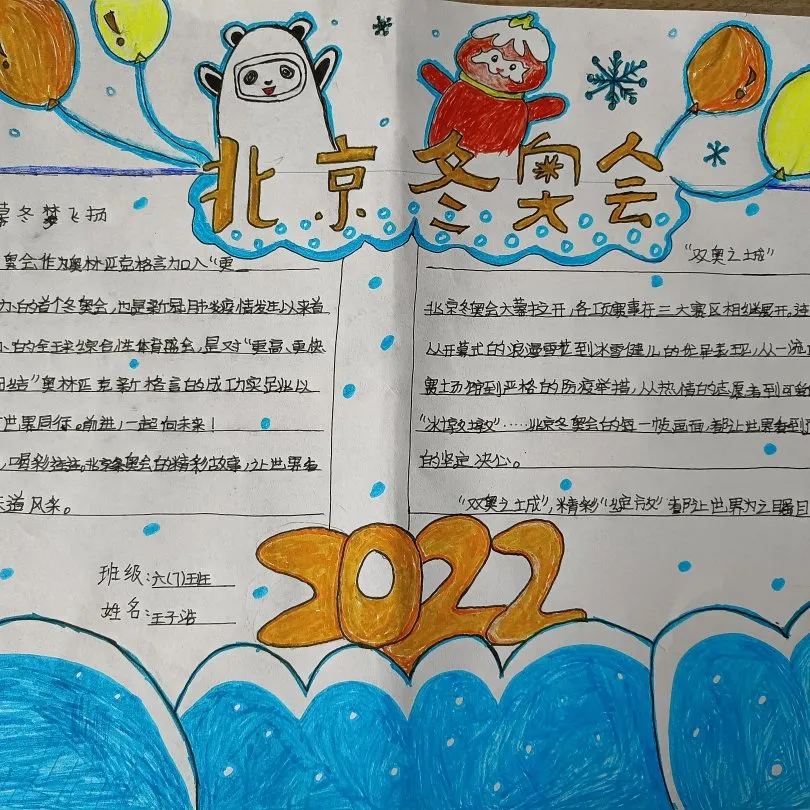 北京冬奥会
冬梦飞扬
奥会作为奥林匹克格言加入“更
办的首个冬奥会,也是新冠肺炎疫情发生以来首
办的全球综合性体育盛会,是对“更高、更快
团结”奥林匹克新格言的成功实践以
世界同行。前进,一起向未来!
喝彩连连,北京冬奥会的精彩故事,让世界
风采。
班级:六(7)班
姓名:王子浩
“双奥之城”
北京冬奥会大幕拉开,各项赛事在三大赛区相继展开,
从开幕式的浪漫雪花到冰雪健儿的优异表现,从一流
赛场馆到严格的防疫举措,从热情的志愿者到可爱
“冰墩墩”……北京冬奥会的每一帧画面,都让世界看到
的坚定决心。
“双奥之城”,精彩“绽放”都让世界为之瞩目
2022